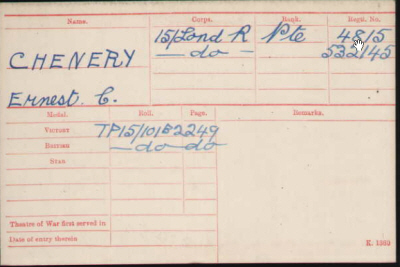 Name. Corps. Rank. Regtl. No.
15/Lond R Pte 4815
CHENERY — do — 532145
Ernest. C.
Medal. Roll. Page. Remarks.
Victory TP15/101B2 2249
British — do — do
Star
Theatre of War first served in
Date of entry therein K. 1380